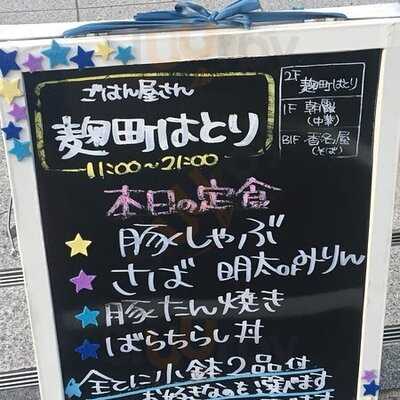 ごはん屋さん
麹町はとり
11:00～21:00
2F 麹町はとり
1F 朝陽
(中華)
B1F 香名屋
(そば)
本日の定食
豚しゃぶ
さば 明太orみりん
豚たん焼き
ばらちらし丼
全てに小鉢2品付
お好きなのを選べます